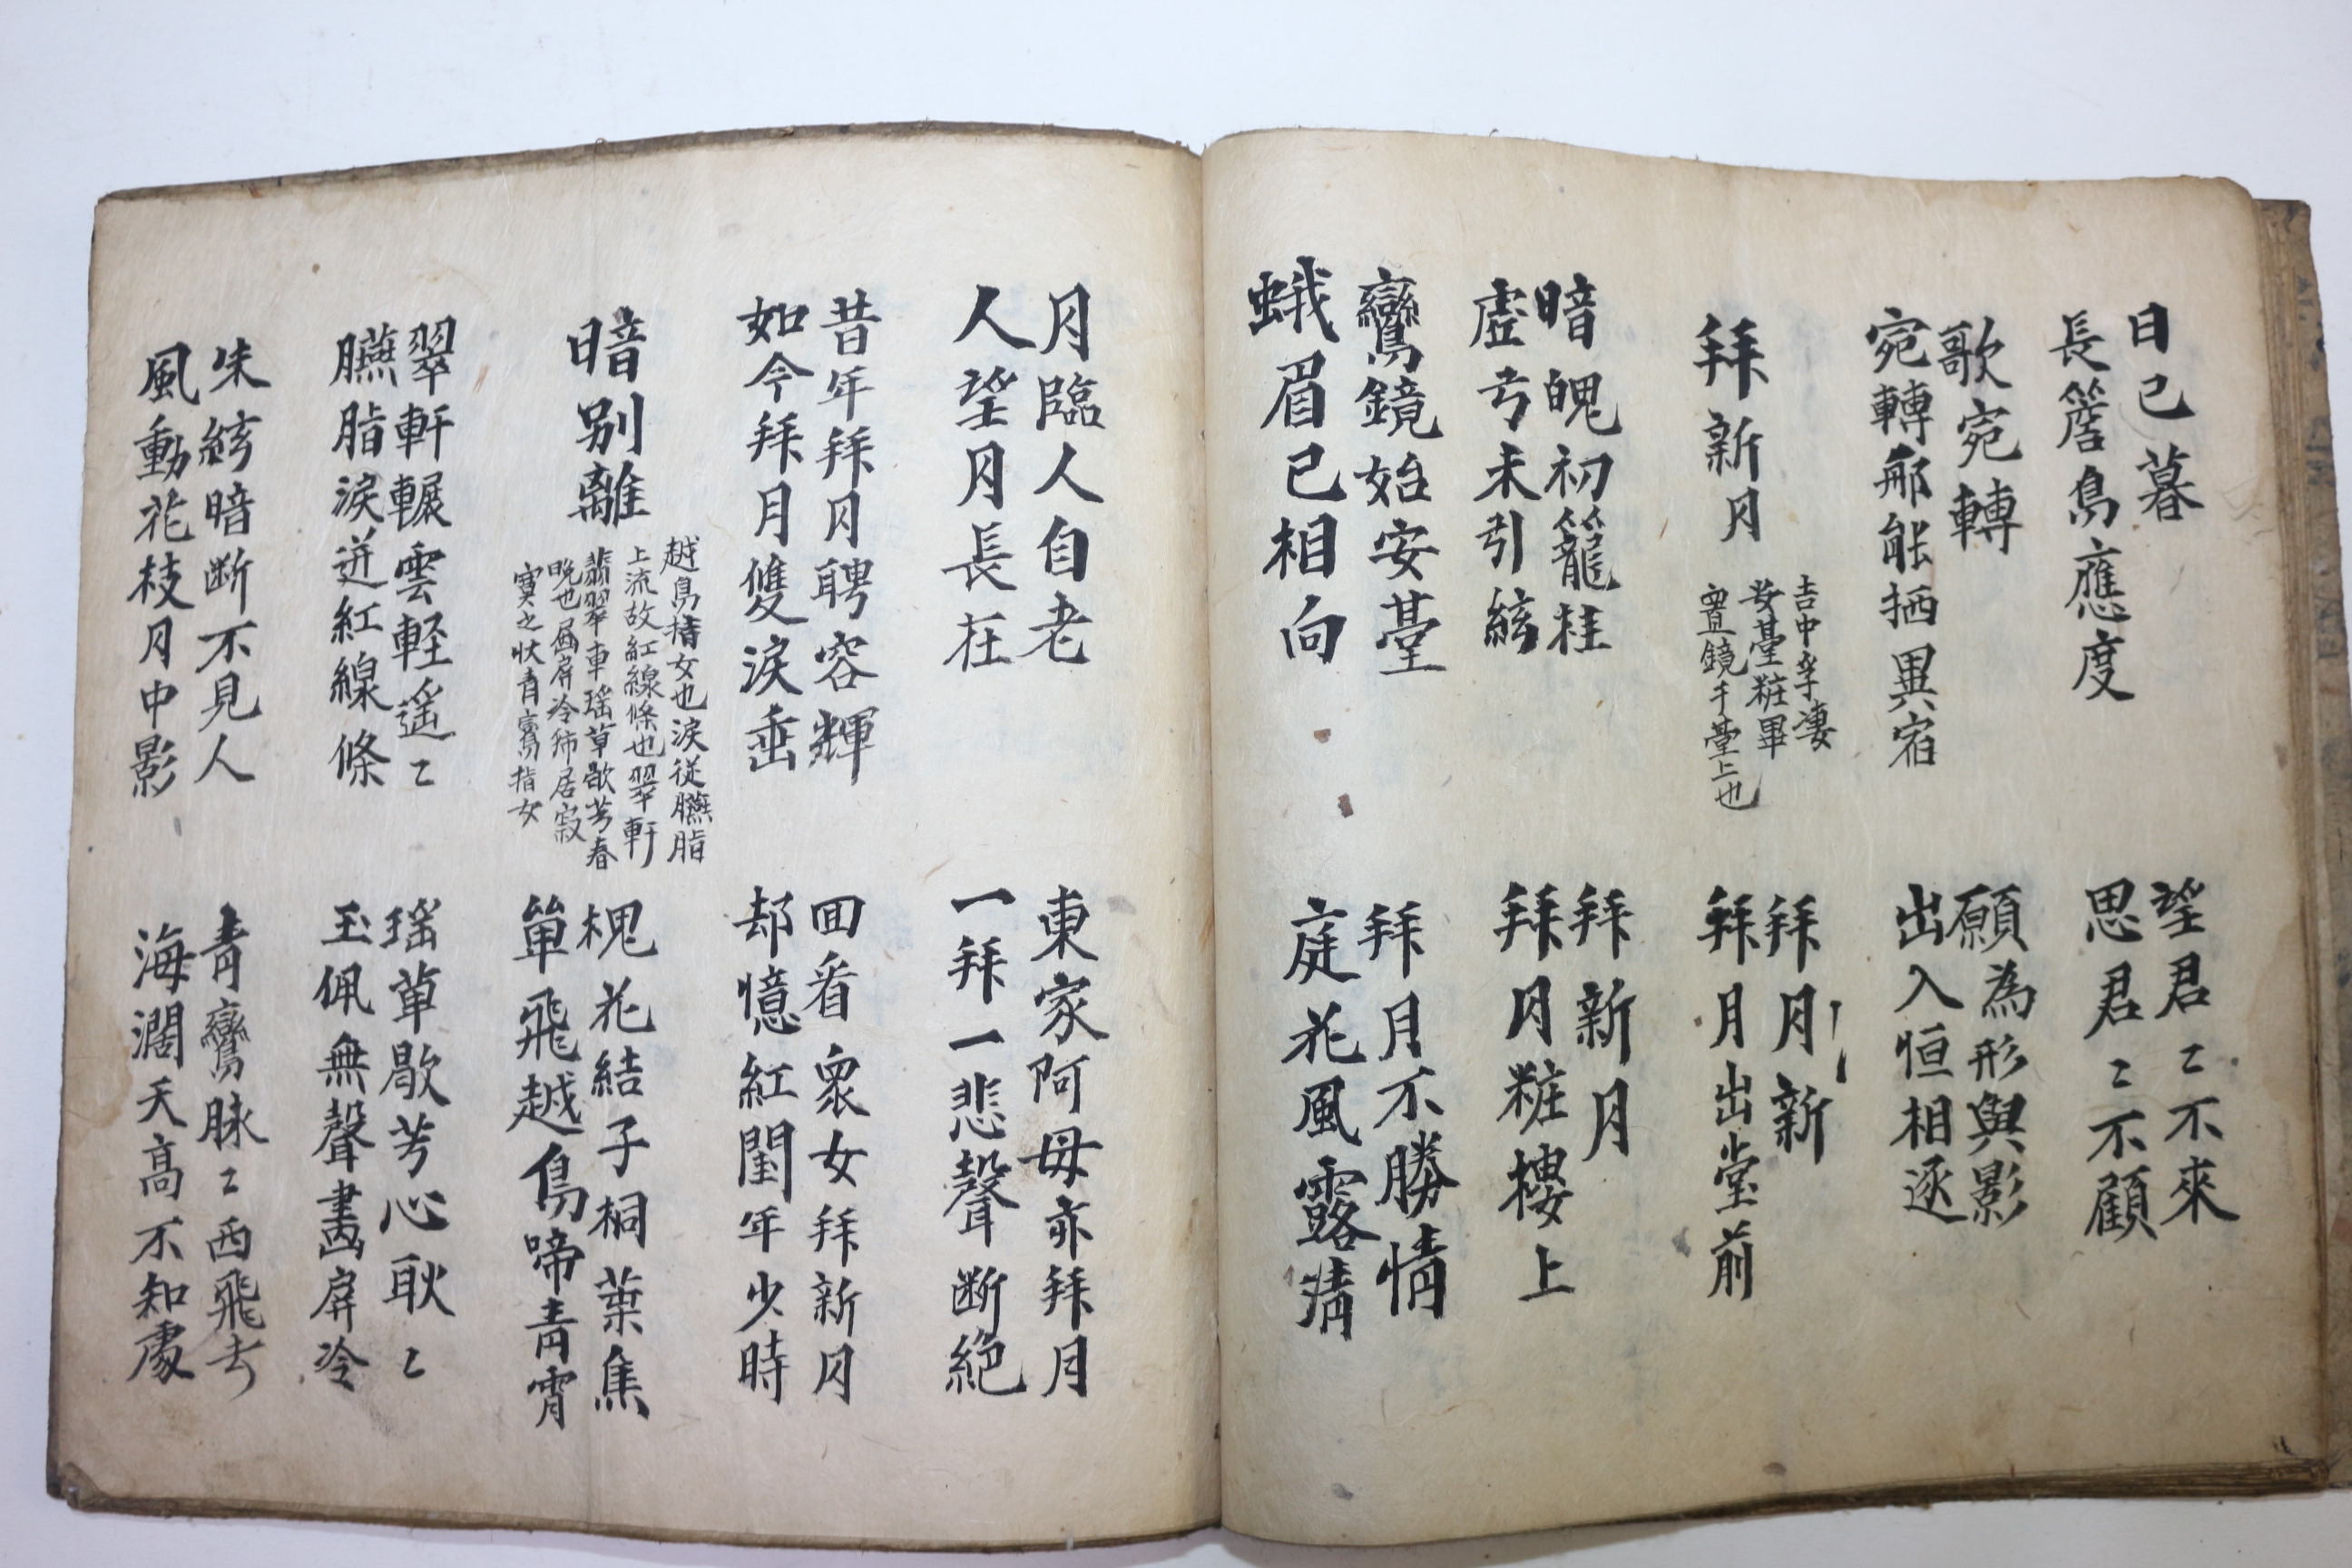 日已暮
長簷鳥應度
望君〻不來
思君〻不顧
歌宛轉
宛轉那能栖異宿
願為形與影
出入恒相逐
拜新月
吉中孚妻
安臺粧畢
置鏡于臺上也
拜月新
拜月出堂前
暗魄初籠桂
虛弓未引絃
拜新月
拜月粧樓上
鸞鏡始安臺
蛾眉已相向
拜月不勝情
庭花風露清
月臨人自老
人望月長在
東家阿母亦拜月
一拜一悲聲断絕
昔年拜月聘容輝
如今拜月雙淚垂
回看衆女拜新月
却憶紅閨年少時
暗別離
越鳥指女也淚従臙脂
上流故紅線條也翠軒
翡翠車瑶草歇芳春
晩也畵屏冷独居寂
寞之状青鸞指女
槐花結子桐葉焦
單飛越鳥啼青霄
翠軒輾雲軽遥〻
臙脂淚迸紅線條
瑶草歇芳心耿〻
玉佩無聲畵屏冷
朱絃暗断不見人
風動花枝月中影
青鸞脉〻西飛去
海濶天高不知處